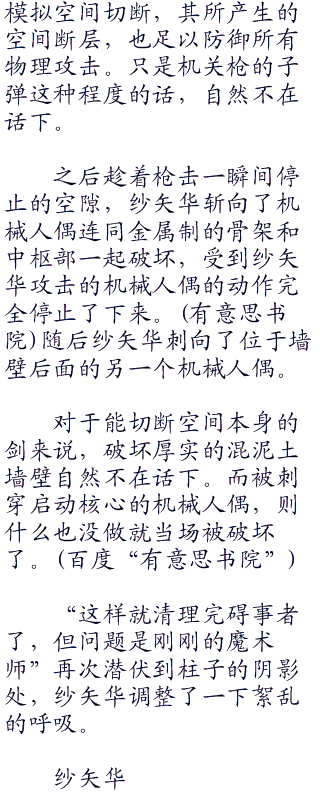 模拟空间切断，其所产生的
空间断层，也足以防御所有
物理攻击。只是机关枪的子
弹这种程度的话，自然不在
话下。
之后趁着枪击一瞬间停
止的空隙，纱矢华斩向了机
械人偶连同金属制的骨架和
中枢部一起破坏，受到纱矢
华攻击的机械人偶的动作完
全停止了下来。(有意思书
院)随后纱矢华刺向了位于墙
壁后面的另一个机械人偶。
对于能切断空间本身的
剑来说，破坏厚实的混泥土
墙壁自然不在话下。而被刺
穿启动核心的机械人偶，则
什么也没做就当场被破坏
了。(百度“有意思书院”)
“这样就清理完碍事者
了，但问题是刚刚的魔术
师”再次潜伏到柱子的阴影
处，纱矢华调整了一下絮乱
的呼吸。
纱矢华